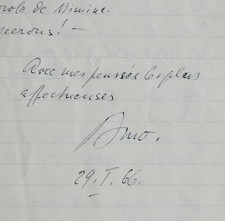 de Mimine.
espérons! -
Avec mes pensées les plus
affectueuses
Arno.
29.I.66.